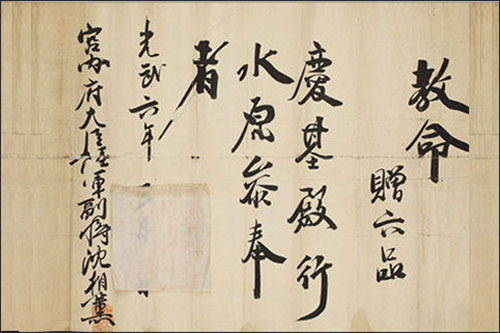 教命
贈六品
慶基殿行
水原叅奉
者
光武六年 月 日
宮內府大臣陸軍副將沈相薰